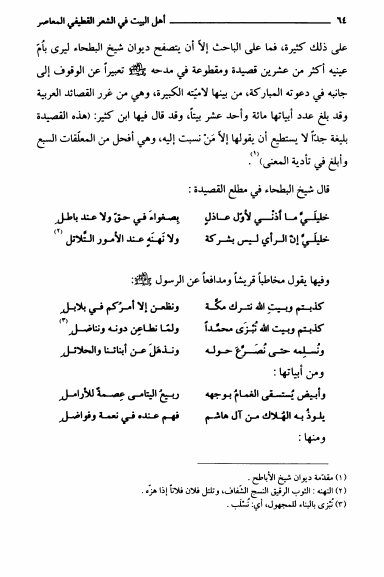 ٦٤ أهل البيت في الشعر القطيفي المعاصر
على ذلك كثيرة، فما على الباحث إلاّ أن يتصفح ديوان شيخ البطحاء ليرى بأمّ
عينيه أكثر من عشرين قصيدة ومقطوعة في مدحه ﷺ تعبيراً عن الوقوف إلى
جانبه في دعوته المباركة، من بينها لاميّته الكبيرة، وهي من غرر القصائد العربية
وقد بلغ عدد أبياتها مائة وأحد عشر بيتاً، وقد قال فيها ابن كثير: (هذه القصيدة
بليغة جدّاً لا يستطيع أن يقولها إلاّ مَنْ نسبت إليه، وهي أفحل من المعلّقات السبع
وأبلغ في تأدية المعنى)(١).
قال شيخ البطحاء في مطلع القصيدة :
خليليَّ ما أذنْـي لأوّل عـاذلٍ بصغواءَ في حقّ ولا عند باطلِ
خليليَّ إنّ الرأي ليس بشركة ولا نَهْنَهٍ عند الأمور التَّلاتل(٢)
وفيها يقول مخاطباً قريشاً ومدافعاً عن الرسول ﷺ:
كذبتـم وبيـتِ الله نتـرك مكّـة ونظعـن إلا أمركـم في بلابـلِ
كذبتم وبيت الله نُبْزَى محمّـداً ولمّا نطاعن دونـه ونناضـلِ(٣)
ونُسلِمه حتـى نُصَـرَّعَ حـولـه ونذهَلَ عن أبنائنـا والحلائـل
ومن أبياتها :
وأبيض يُستسقى الغمامُ بوجهه ربيعُ اليتامى عِصمةٌ للأراملِ
يلوذُ به الهُلاك من آل هاشم فهم عنده في نعمة وفواضل
ومنها :
(١) مقدّمة ديوان شيخ الأباطح .
(٢) النهنه : الثوب الرقيق النسج الشّفاف، وتلتل فلان فلاناً إذا هزّه .
(٣) نُبْزى بالبناء للمجهول، أي: نُسْلَب .